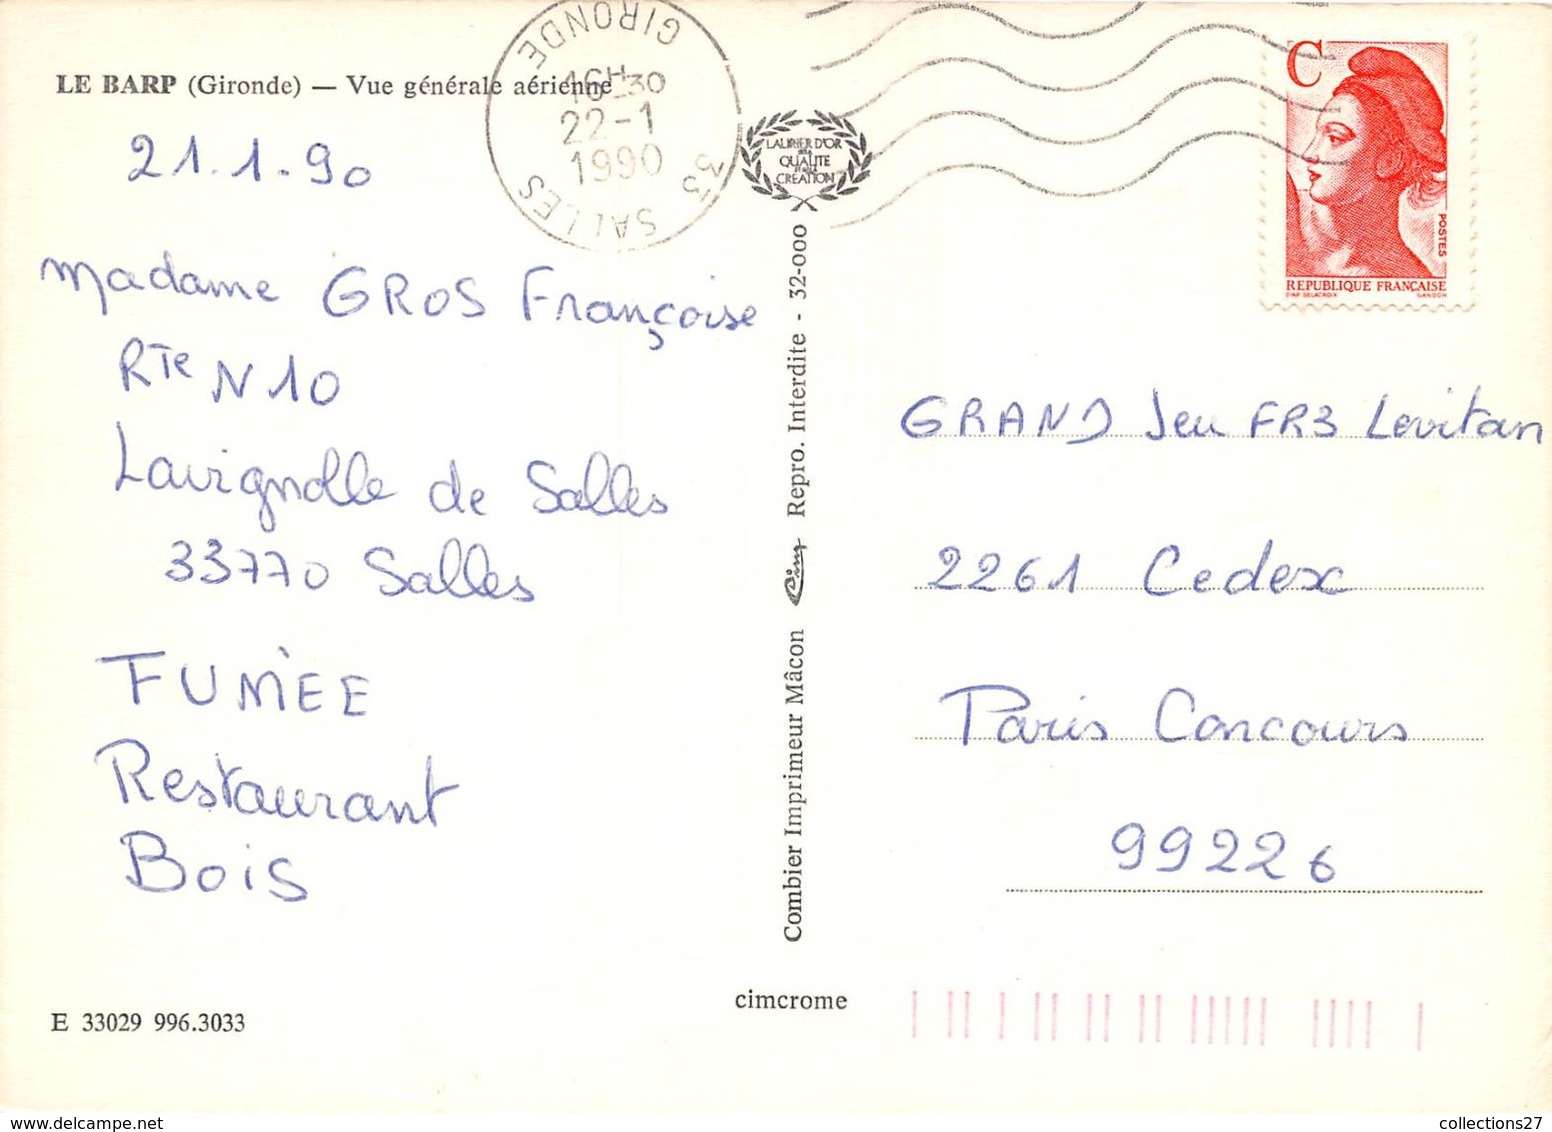 LE BARP (Gironde) — Vue générale aérienne
GIRONDE
16H30
22-1
1990
33 SALLES
LAURIER D'OR
DE LA
QUALITE
ET DE LA
CREATION
C
POSTES
REPUBLIQUE FRANÇAISE
D'AP. DELACROIX GANDON
21.1.90
Madame GROS Françoise
RTe N 10
Lavignolle de Salles
33770 Salles
FUMÉE
Restaurant
Bois
Combier Imprimeur Mâcon Cim Repro. Interdite - 32-000
GRAND Jeu FR3 Levitan
2261 Cedex
Paris Concours
99226
cimcrome
E 33029 996.3033
collections27